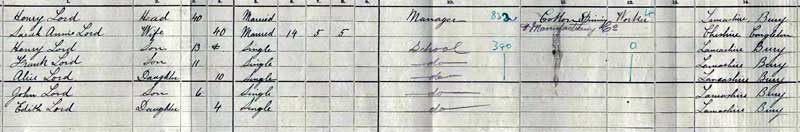 Henry Lord Head 40 Married Manager 832 Cotton Spining Worker Lancashire Bury
& Manufacturing Co
Sarah Annie Lord Wife 40 Married 14 5 5 Cheshire Congleton
Henry Lord Son 13 Single School 390 0 Lancashire Bury
Frank Lord Son 11 Single do Lancashire Bury
Alice Lord Daughter 10 Single do Lancashire Bury
John Lord Son 6 Single do Lancashire Bury
Edith Lord Daughter 4 Single do Lancashire Bury